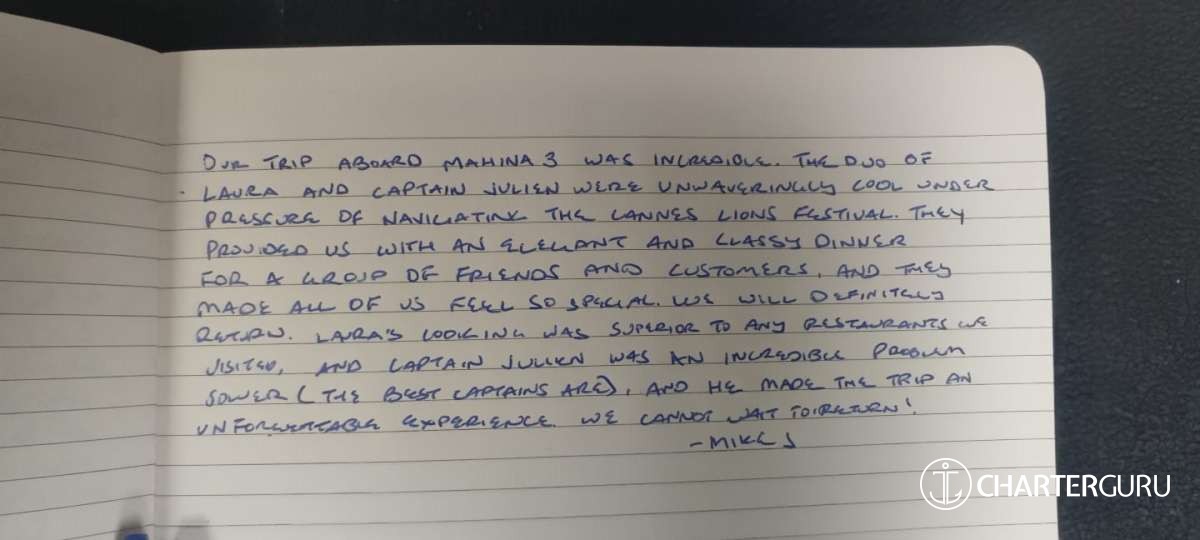 OUR TRIP ABOARD MAHINA 3 WAS INCREDIBLE. THE DUO OF
LAURA AND CAPTAIN JULIEN WERE UNWAVERINGLY COOL UNDER
PRESSURE OF NAVIGATING THE CANNES LIONS FESTIVAL. THEY
PROVIDED US WITH AN ELEGANT AND CLASSY DINNER
FOR A GROUP OF FRIENDS AND CUSTOMERS, AND THEY
MADE ALL OF US FEEL SO SPECIAL. WE WILL DEFINITELY
RETURN. LAURA'S COOKING WAS SUPERIOR TO ANY RESTAURANTS WE
VISITED, AND CAPTAIN JULIEN WAS AN INCREDIBLE PROBLEM
SOLVER (THE BEST CAPTAINS ARE), AND HE MADE THE TRIP AN
UNFORGETTABLE EXPERIENCE. WE CANNOT WAIT TO RETURN!
-MIKE J
CHARTERGURU